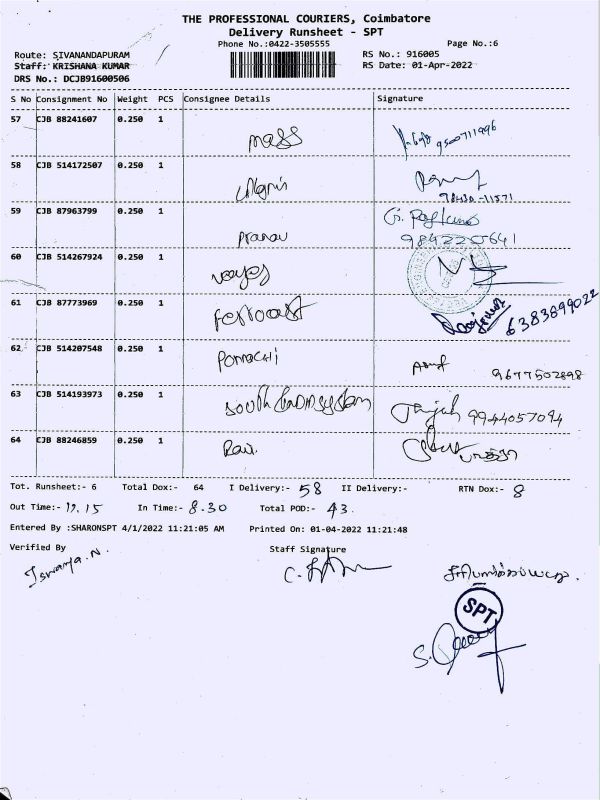 THE PROFESSIONAL COURIERS, Coimbatore
Delivery Runsheet - SPT
Phone No.:0422-3505555
Page No.:6
Route: SIVANANDAPURAM
RS No.: 916005
Staff: KRISHANA KUMAR
RS Date: 01-Apr-2022
DRS No.: DCJB91600506
S No Consignment No Weight PCS Consignee Details Signature
57 CJB 88241607 0.250 1 mass 9500711996
58 CJB 514172507 0.250 1
59 CJB 87963799 0.250 1 pranav 9842225641
60 CJB 514267924 0.250 1
61 CJB 87773969 0.250 1 ferrocast 6383899022
62 CJB 514207548 0.250 1 Ponnachi 9677502898
63 CJB 514193973 0.250 1 south 9944057094
64 CJB 88246859 0.250 1 Ravi.
Tot. Runsheet:- 6 Total Dox:- 64 I Delivery:- 58 II Delivery:- RTN Dox:- 8
Out Time:- 11.15 In Time:- 8.30 Total POD:- 43.
Entered By :SHARONSPT 4/1/2022 11:21:05 AM Printed On: 01-04-2022 11:21:48
Verified By Staff Signature
Iswarya.N.
SPT